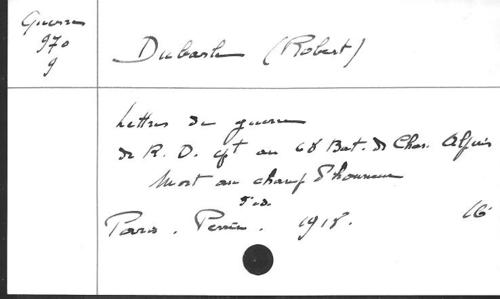 Guerre
970
9
Dubarle (Robert)
Lettres de guerre
de R. D. cpt au 68 Bat. de Chas. Alpins
Mort au champ d'honneur
5e éd.
Paris. Perrin. 1918. 16°